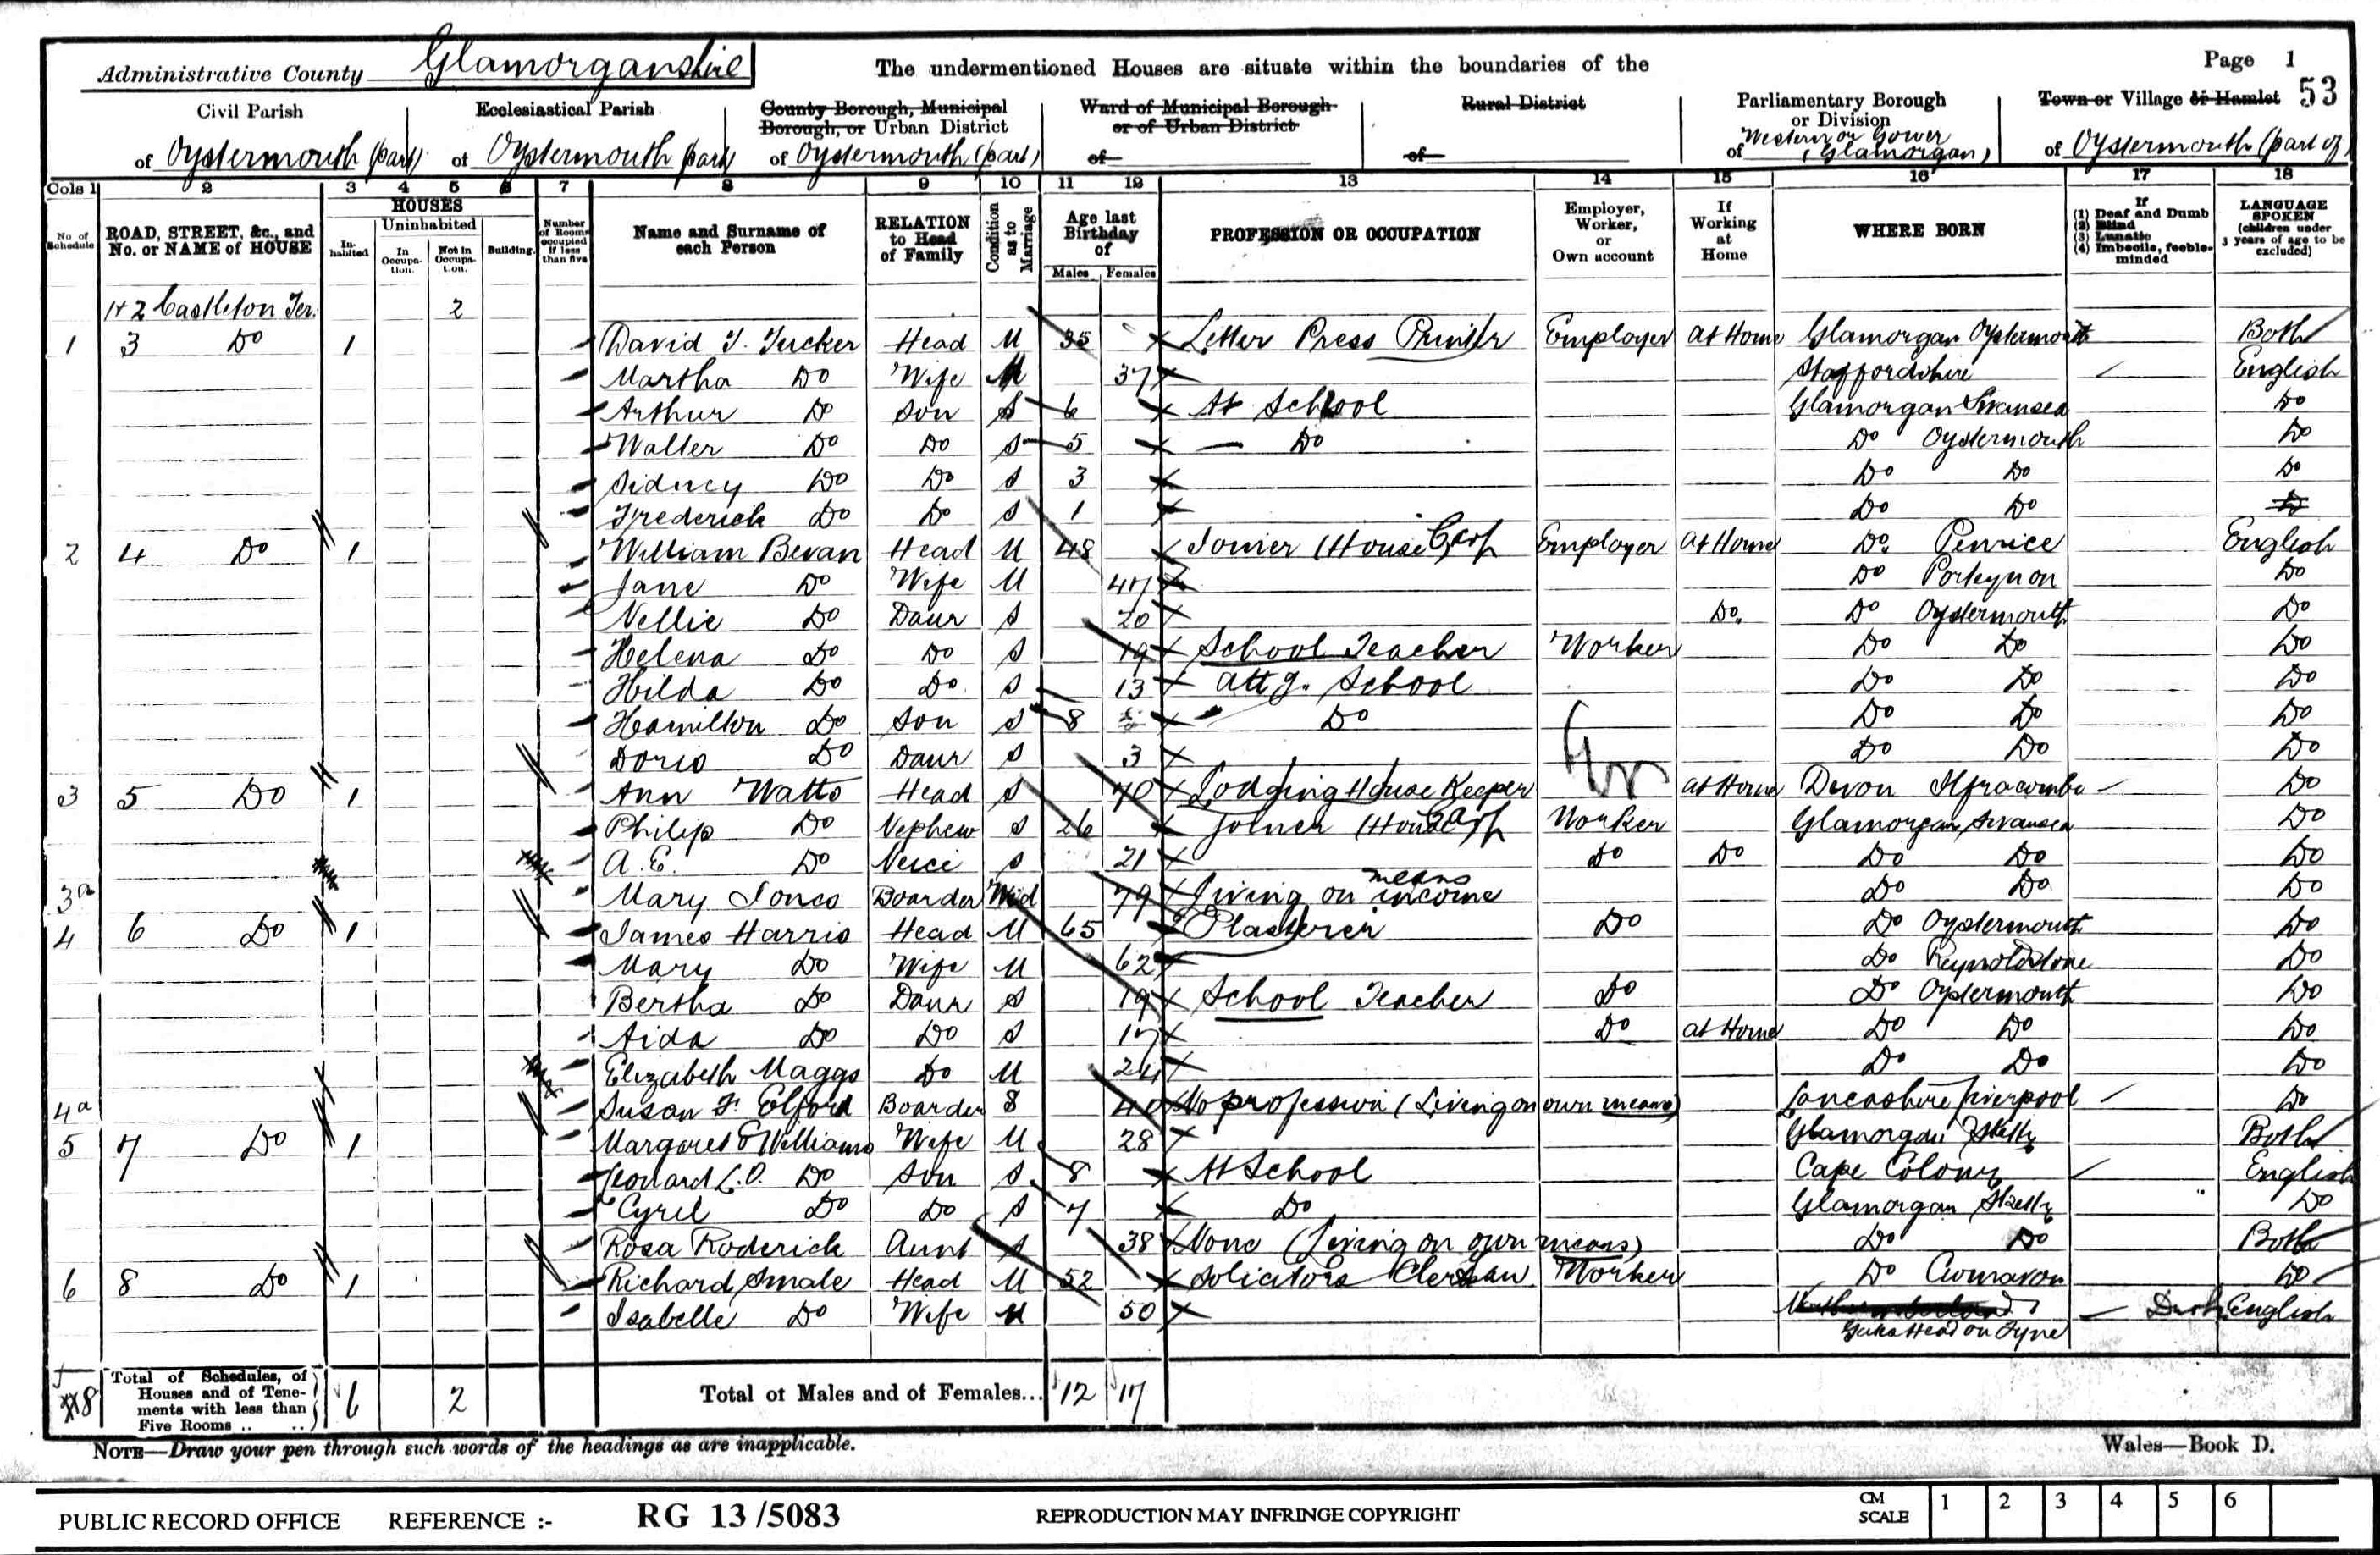 Administrative County Glamorganshire The undermentioned Houses are situate within the boundaries of the Page 1
53
Civil Parish Ecclesiastical Parish County Borough, Municipal Borough, or Urban District Ward of Municipal Borough or of Urban District Rural District Parliamentary Borough or Division Town or Village or Hamlet
of Oystermouth (part) of Oystermouth part of Oystermouth (part) of of of Western or Gower (Glamorgan) of Oystermouth (part of)
Cols 1 2 3 4 5 6 7 8 9 10 11 12 13 14 15 16 17 18
No. of Schedule ROAD, STREET, &c., and No. or NAME of HOUSE HOUSES Inhabited Uninhabited In Occupation. Not in Occupation. Building. Number of Rooms occupied if less than five Name and Surname of each Person RELATION to Head of Family Condition as to Marriage Age last Birthday of Males Females PROFESSION OR OCCUPATION Employer, Worker, or Own account If Working at Home WHERE BORN If (1) Deaf and Dumb (2) Blind (3) Lunatic (4) Imbecile, feeble-minded LANGUAGE SPOKEN (children under 3 years of age to be excluded)
1 + 2 Castleton Ter. 2
1 3 Do 1 David T. Tucker Head M 35 Letter Press Printer Employer At Home Glamorgan Oystermouth Both
Martha Do Wife M 37 Staffordshire English
Arthur Do Son S 6 At School Glamorgan Swansea Do
Walter Do Do S 5 Do Do Oystermouth Do
Sidney Do Do S 3 Do Do Do
Frederick Do Do S 1 Do Do Do
2 4 Do 1 William Bevan Head M 48 Joiner (House Carp Employer At Home Do Penrice English
Jane Do Wife M 47 Do Porteynon Do
Nellie Do Daur S 20 Do. Do Oystermouth Do
Helena Do Do S 19 School Teacher Worker Do Do Do
Hilda Do Do S 13 Attg. School Do Do Do
Hamilton Do Son S 8 Do Do Do Do
Doris Do Daur S 3 Do Do Do
3 5 Do 1 Ann Watts Head S 70 Lodging House Keeper At Home Devon Ilfracombe Do
Philip Do Nephew S 26 Joiner (House Carp Worker Glamorgan Swansea Do
A. E. Do Neice S 21 Do Do Do Do Do
3a Mary Jones Boarder Wid 79 Living on means income Do Do Do
4 6 Do 1 James Harris Head M 65 Plasterer Do Do Oystermouth Do
Mary Do Wife M 62 Do Reynoldstone Do
Bertha Do Daur S 19 School Teacher Do Do Oystermouth Do
Aida Do Do S 17 Do At Home Do Do Do
Elizabeth Maggs Do M 24 Do Do Do
4a Susan F. Elford Boarder S 40 No profession (Living on own means) Lancashire Liverpool Do
5 7 Do 1 Margaret E Williams Wife M 28 Glamorgan Sketty Both
Leonard L. O. Do Son S 8 At School Cape Colony English
Cyril Do Do S 7 Do Glamorgan Sketty Do
Rosa Roderick Aunt S 38 None (Living on own means) Do Do Both
6 8 Do 1 Richard Smale Head M 52 Solicitors Clerk Worker Do Cwmavon Do
Isabelle Do Wife M 50 Gateshead on Tyne English
8 Total of Schedules, of Houses and of Tenements with less than Five Rooms .. .. 6 2 Total of Males and of Females... 12 17
NOTE—Draw your pen through such words of the headings as are inapplicable. Wales—Book D.
PUBLIC RECORD OFFICE REFERENCE :- RG 13/5083 REPRODUCTION MAY INFRINGE COPYRIGHT CM SCALE 1 2 3 4 5 6